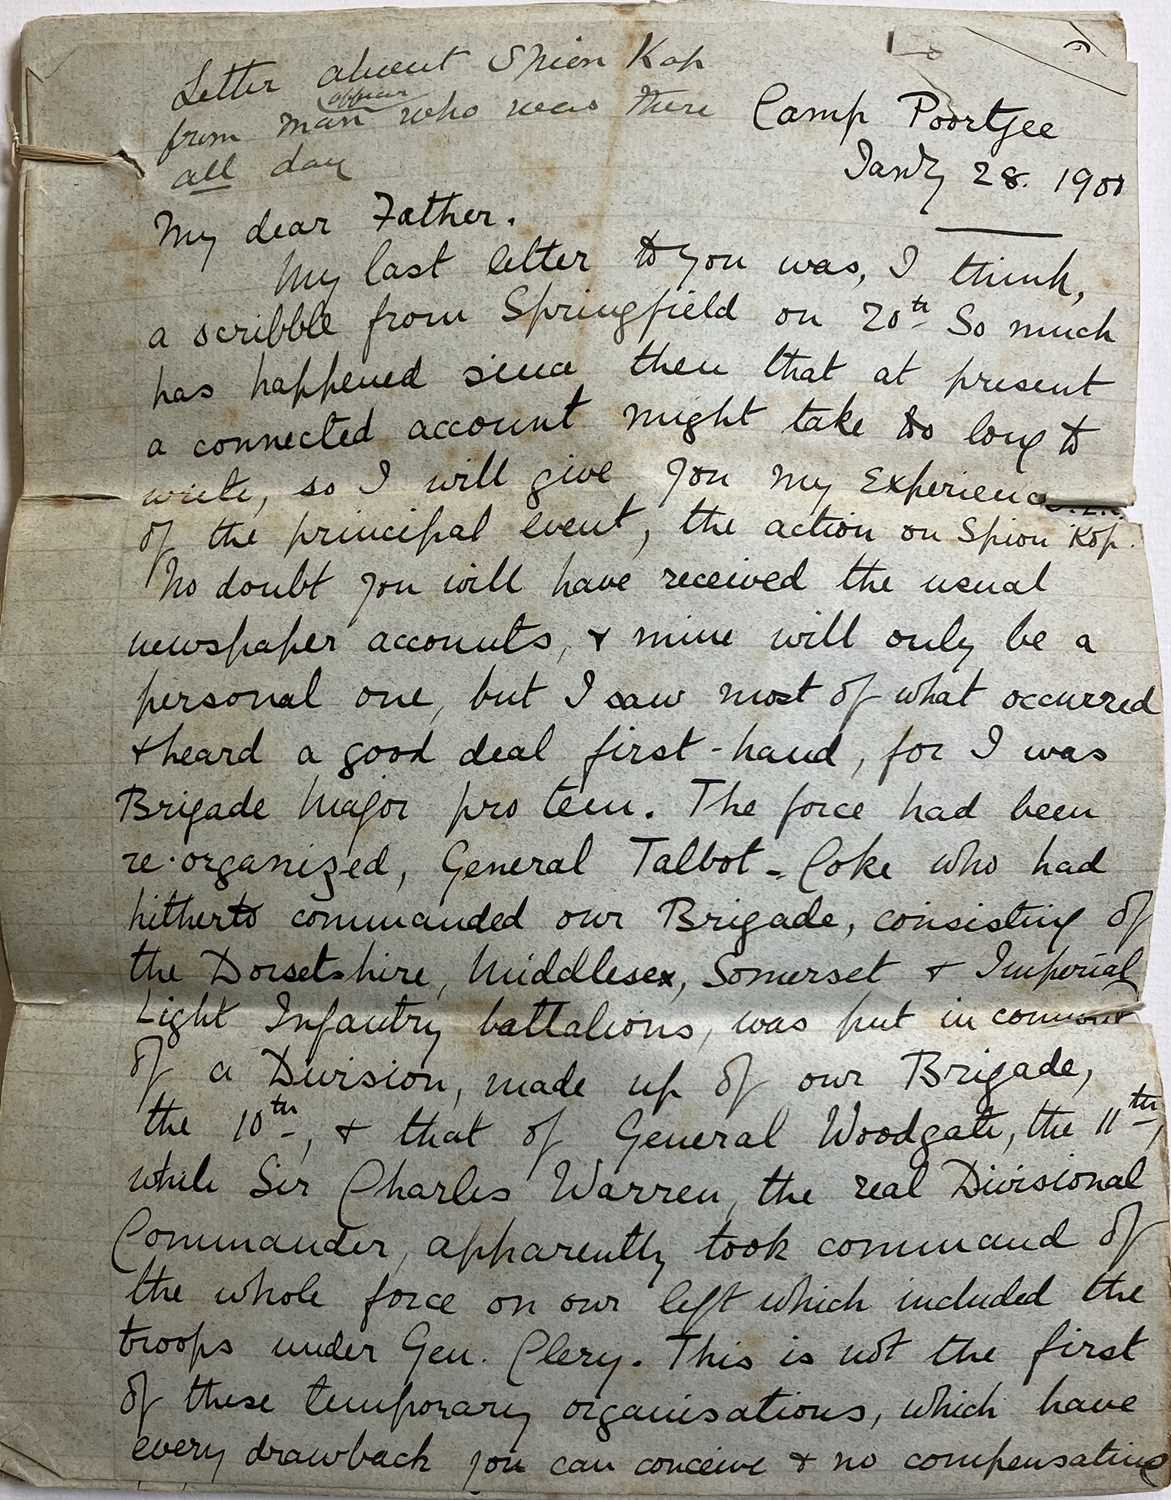 Letter about Spion Kop
officer
from man who was there
all day
Camp Poortjee
Jany 28. 1900
My dear Father.
My last letter to you was, I think,
a scribble from Springfield on 20th So much
has happened since then that at present
a connected account might take too long to
write, so I will give you my Experience
of the principal event, the action on Spion Kop.
No doubt you will have received the usual
newspaper accounts, & mine will only be a
personal one, but I saw most of what occurred
& heard a good deal first-hand, for I was
Brigade Major pro tem. The force had been
re-organized, General Talbot-Coke who had
hitherto commanded our Brigade, consisting of
the Dorsetshire, Middlesex, Somerset & Imperial
Light Infantry battalions, was put in command
of a Division, made up of our Brigade,
the 10th, & that of General Woodgate, the 11th,
while Sir Charles Warren, the real Divisional
Commander, apparently took command of
the whole force on our left which included the
troops under Gen. Clery. This is not the first
of these temporary organisations, which have
every drawback you can conceive & no compensating